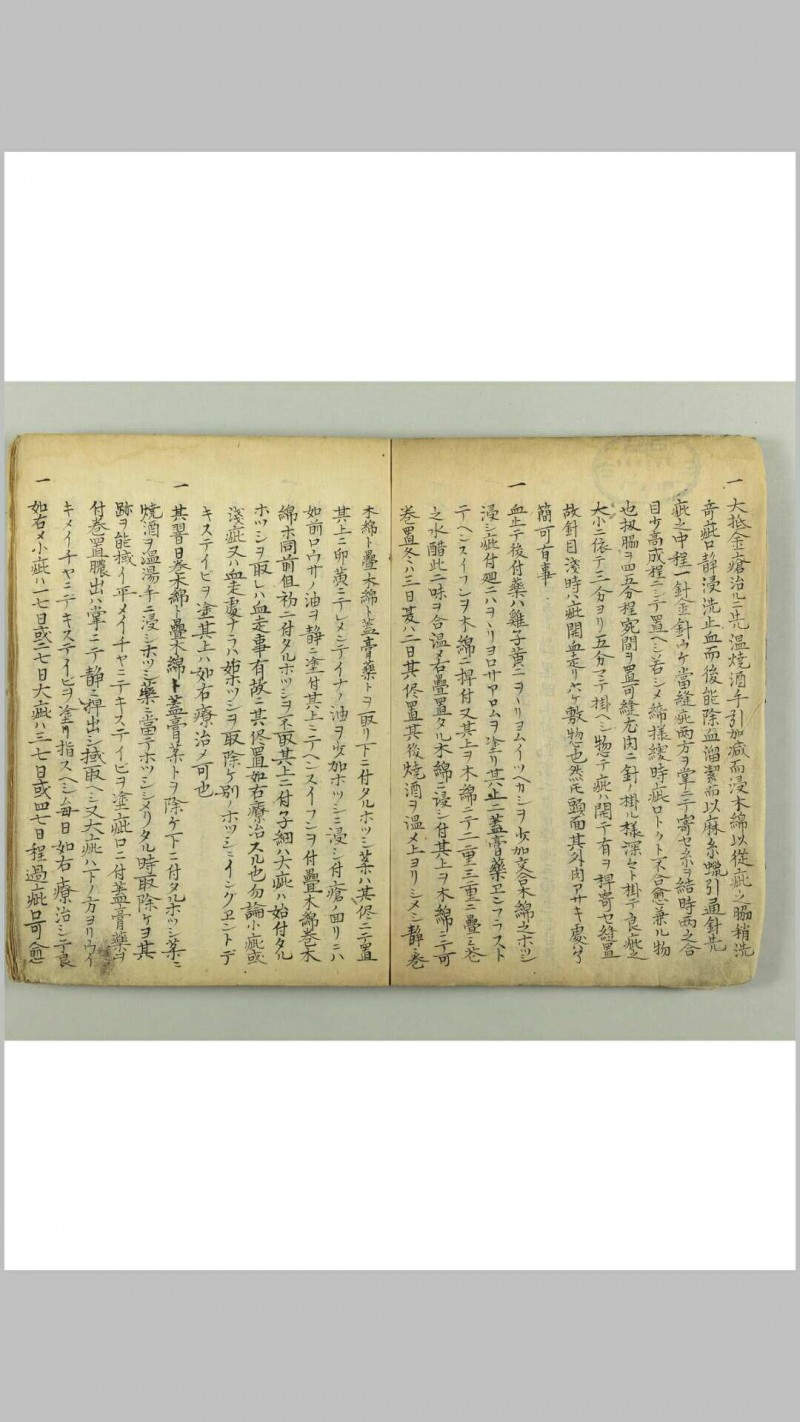 一 大抵金瘡治ルニ先温焼酒手引加減而浸木綿以從疵之脇稍洗
寄疵口静浸洗止血而後能除血溜絜而以麻糸蠟引通針先
疵之中程一針金針ウケ當縫疵两方ヲ掌ニテ寄セ糸ヲ結時两之合
目少高成程ニシテ置ヘシ若シメ締様緩時疵口トクト不合愈兼ル物
也扨脇ヲ四五分程宛間ヲ置可縫尤肉ニ針ノ掛ル様深セト掛テ良疵之
大小ニ依テ二分ヨリ五分マテ掛ヘシ惣テ疵ハ開テ有ヲ押寄セ縫置
故針目淺時ハ疵開血走リ六ケ敷物也然氏頭面其外肉アサキ處ハ
簡可有事
一 血止テ後付藥ハ雞子黄ニヲヽリヨムイツヘカシヲ少加交合木綿之ホツシ
浸シ疵付廻ニハヲヽリヨロサアロムヲ塗リ其上ニ蓋膏藥ヱンフラスト
テヘンスイフンヲ木綿ニ押付又其上ヲ木綿ニテ二重三重ニ疊ミ巻
之水醋此二味ヲ合温メ右疊置タル木綿ニ浸シ付其上ヲ木綿ニテ可
巻置冬ハ三日夏ハ二日其侭置其後焼酒ヲ温メ上ヨリシメシ静ニ巻
木綿ト疊木綿ト蓋膏藥トヲ取リ下ニ付タルホツシ藥ハ其侭ニテ置
其上ニ卵黄ニテレメンテイナノ油ヲ少加ホツシニ浸シ付瘡ノ回リニハ
如前ロウサノ油ヲ静ニ塗付其上ニテヘンスイフンヲ付疊木綿巻木
綿ホ同前但初ニ付タルホツシヲ不取其上ニ付子細ハ大疵ハ始付タル
ホツシヲ取レハ血走事有故ニ其侭置如右療治スル也勿論小疵或
淺疵又ハ血走處ナラハ始ホツシヲ取除ケ別ノホツシニイングヱントデ
キステイビヲ塗其上ハ如右療治メ可也
一 其翌日巻木綿ト疊木綿ト蓋膏藥トヲ除ケ下ニ付タルホツシ藥ニ
焼酒ヲ温湯手ニ浸シホツシ藥ニ當テホツシシメリタル時取除ケヲ其
跡ヲ能拭イ平メイチヤニテキステイビヲ塗疵口ニ付蓋膏藥ヲ
付巻置膿出ハ掌ニテ静ニ押出シ拭取ヘシ又大疵ハ下ノ方ヨリウイ
キメイチヤニテキステイビヲ塗リ指スヘシ毎日如右療治シテ良
一 如右メ小疵ハ一七日或二七日大疵ハ三七日或四七日程過疵口可愈